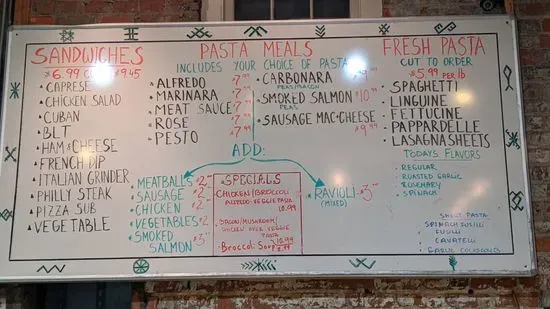 SANDWICHES
$6.99 $9.45
CAPRESE
CHICKEN SALAD
CUBAN
BLT
HAM & CHEESE
FRENCH DIP
ITALIAN GRINDER
PHILLY STEAK
PIZZA SUB
VEGETABLE
PASTA MEALS
INCLUDES YOUR CHOICE OF PASTA
ALFREDO $7.99
MARINARA $7.99
MEAT SAUCE $7.99
ROSE $7.99
PESTO $7.99
CARBONARA
PEAS/BACON
SMOKED SALMON $10.99
PEAS
SAUSAGE MAC+CHEESE
$9.99
ADD:
MEATBALLS $2
SAUSAGE $2
CHICKEN $2
VEGETABLES $2
SMOKED
SALMON $5
SPECIALS
CHICKEN/BROCCOLI
ALFREDO VEGGIE PASTA
10.99
BACON/MUSHROOM/
CHICKEN OVER VEGGIE
PASTA
10.99
BROCCOLI SOUP
RAVIOLI $3
(MIXED)
FRESH PASTA
CUT TO ORDER
$5.99 PER lb
SPAGHETTI
LINGUINE
FETTUCINE
PAPPARDELLE
LASAGNA SHEETS
TODAYS FLAVORS
REGULAR
ROASTED GARLIC
ROSEMARY
SPINACH
SHORT PASTA
SPINACH FUSILLI
FUSILLI
CAVATELLI
GARLIC